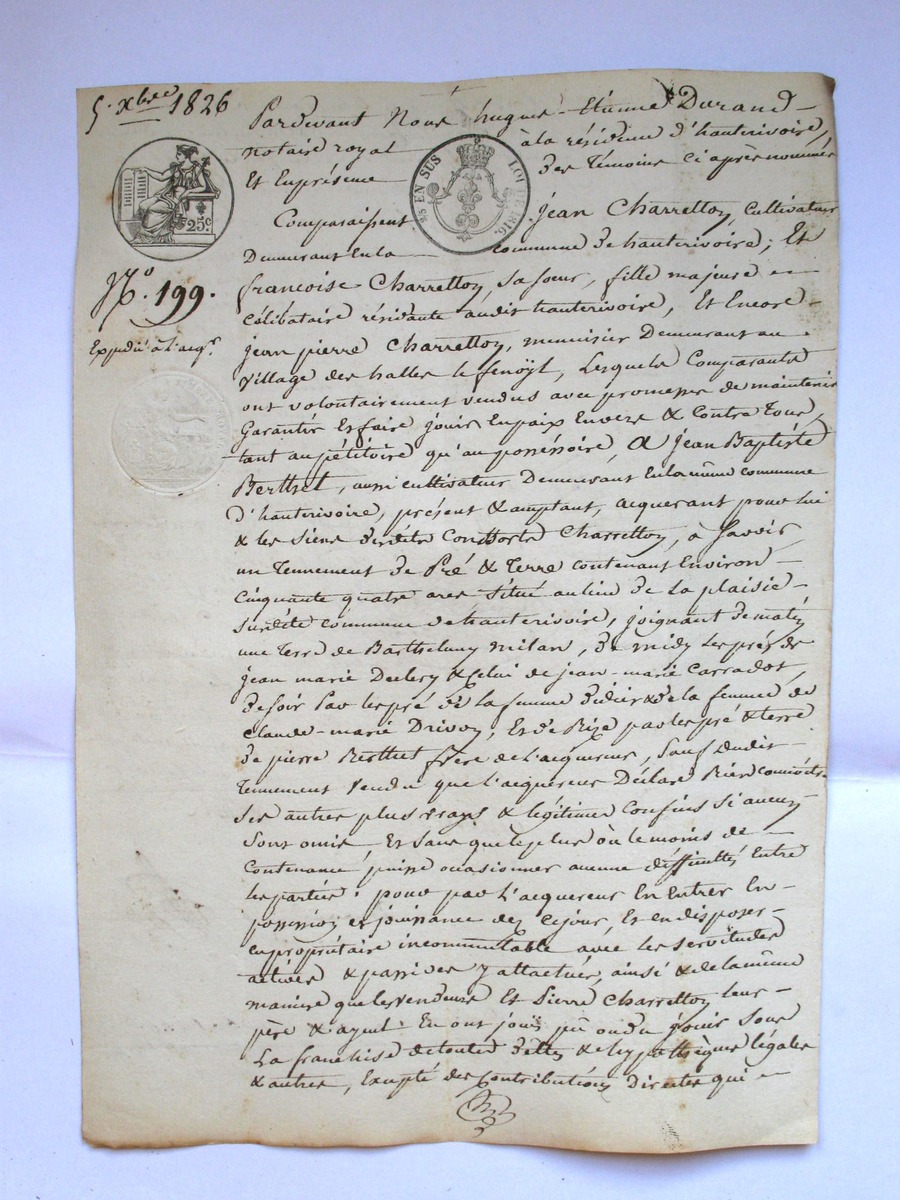 5. Xbre 1826
Pardevant Nous hugues-Etienne Durand
notaire royal à la résidence d'hauterivoire,
Et En présence des témoins ci après nommés
EN SUS LOI 1816.
25c
Comparaissent jean Charretton, Cultivateur
Demeurant En la commune de hauterivoire; Et
francoise Charretton, sa sœur, fille majeure
Célibataire résidante audit hauterivoire, Et Encore
N.o 199.
Expédié à l'acqr.
jean pierre Charretton, menuisier Demeurant au
village des halles le fenoÿl, Lesquels Comparants
ont volontairement vendus avec promesse de maintenir
Garantir Et faire jouir En paix Envers & Contre Tous,
tant au pétitoire qu'au possessoire, A jean Baptiste
Berthet, aussi cultivateur Demeurant En la même commune
d'hauterivoire, présent & acceptant, acquerant pour lui
& les Siens desdits Consorts Charretton, à Savoir
un Tennement de Pré & Terre contenant Environ
Cinquante quatre ares Situé au lieu de la plaisie
Susdite commune de hauterivoire, joignant de matin
une terre de Barthelmy milan, de midy les prés de
jean marie & Celui de jean-marie
de soir par le pré de la femme & de la femme de
Claude-marie Drivon, Et de Bize par les pré & terre
de pierre Berthet frère de l'acquereur, Sauf dudit
Tennement Vendu que l'acquereur Déclare Bien connoitre
Ses autres plus vrays & légitimes Confins Si aucuns
Sont omis, Et Sans que le plus où le moins de
Contenance puisse ocasionner aucune difficultés Entre
les parties: pour par l'acquereur En Entrer En
possession et jouissance dez Ce jour, Et en disposer
en propriétaire incommutable avec les Servitudes
actives & passives y attachées, ainsi & de la même
maniere que les vendeurs Et Pierre Charretton leur
père & ayeul En ont joui pû ou du jouir Sous
La franchise de toutes dettes & hypothèques légales
& autres, Excepté des Contributions Directes qui